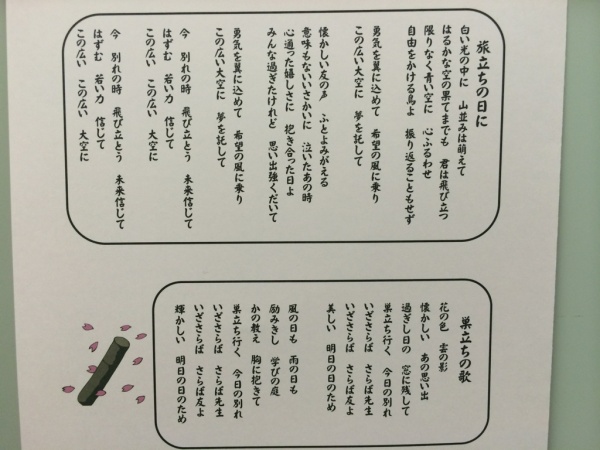 旅立ちの日に
白い光の中に 山並みは萌えて
はるかな空の果てまでも 君は飛び立つ
限りなく青い空に 心ふるわせ
自由をかける鳥よ 振り返ることもせず
勇気を翼に込めて 希望の風に乗り
この広い大空に 夢を託して
懐かしい友の声 ふとよみがえる
意味もないいさかいに 泣いたあの時
心通った嬉しさに 抱き合った日よ
みんな過ぎたけれど 思い出強くだいて
勇気を翼に込めて 希望の風に乗り
この広い大空に 夢を託して
今 別れの時 飛び立とう 未来信じて
はずむ 若い力 信じて
この広い この広い 大空に
今 別れの時 飛び立とう 未来信じて
はずむ 若い力 信じて
この広い この広い 大空に
巣立ちの歌
花の色 雲の影
懐かしい あの思い出
過ぎし日の 窓に残して
巣立ち行く 今日の別れ
いざさらば さらば先生
いざさらば さらば友よ
美しい 明日の日のため
風の日も 雨の日も
励みきし 学びの庭
かの教え 胸に抱きて
巣立ち行く 今日の別れ
いざさらば さらば先生
いざさらば さらば友よ
輝かしい 明日の日のため